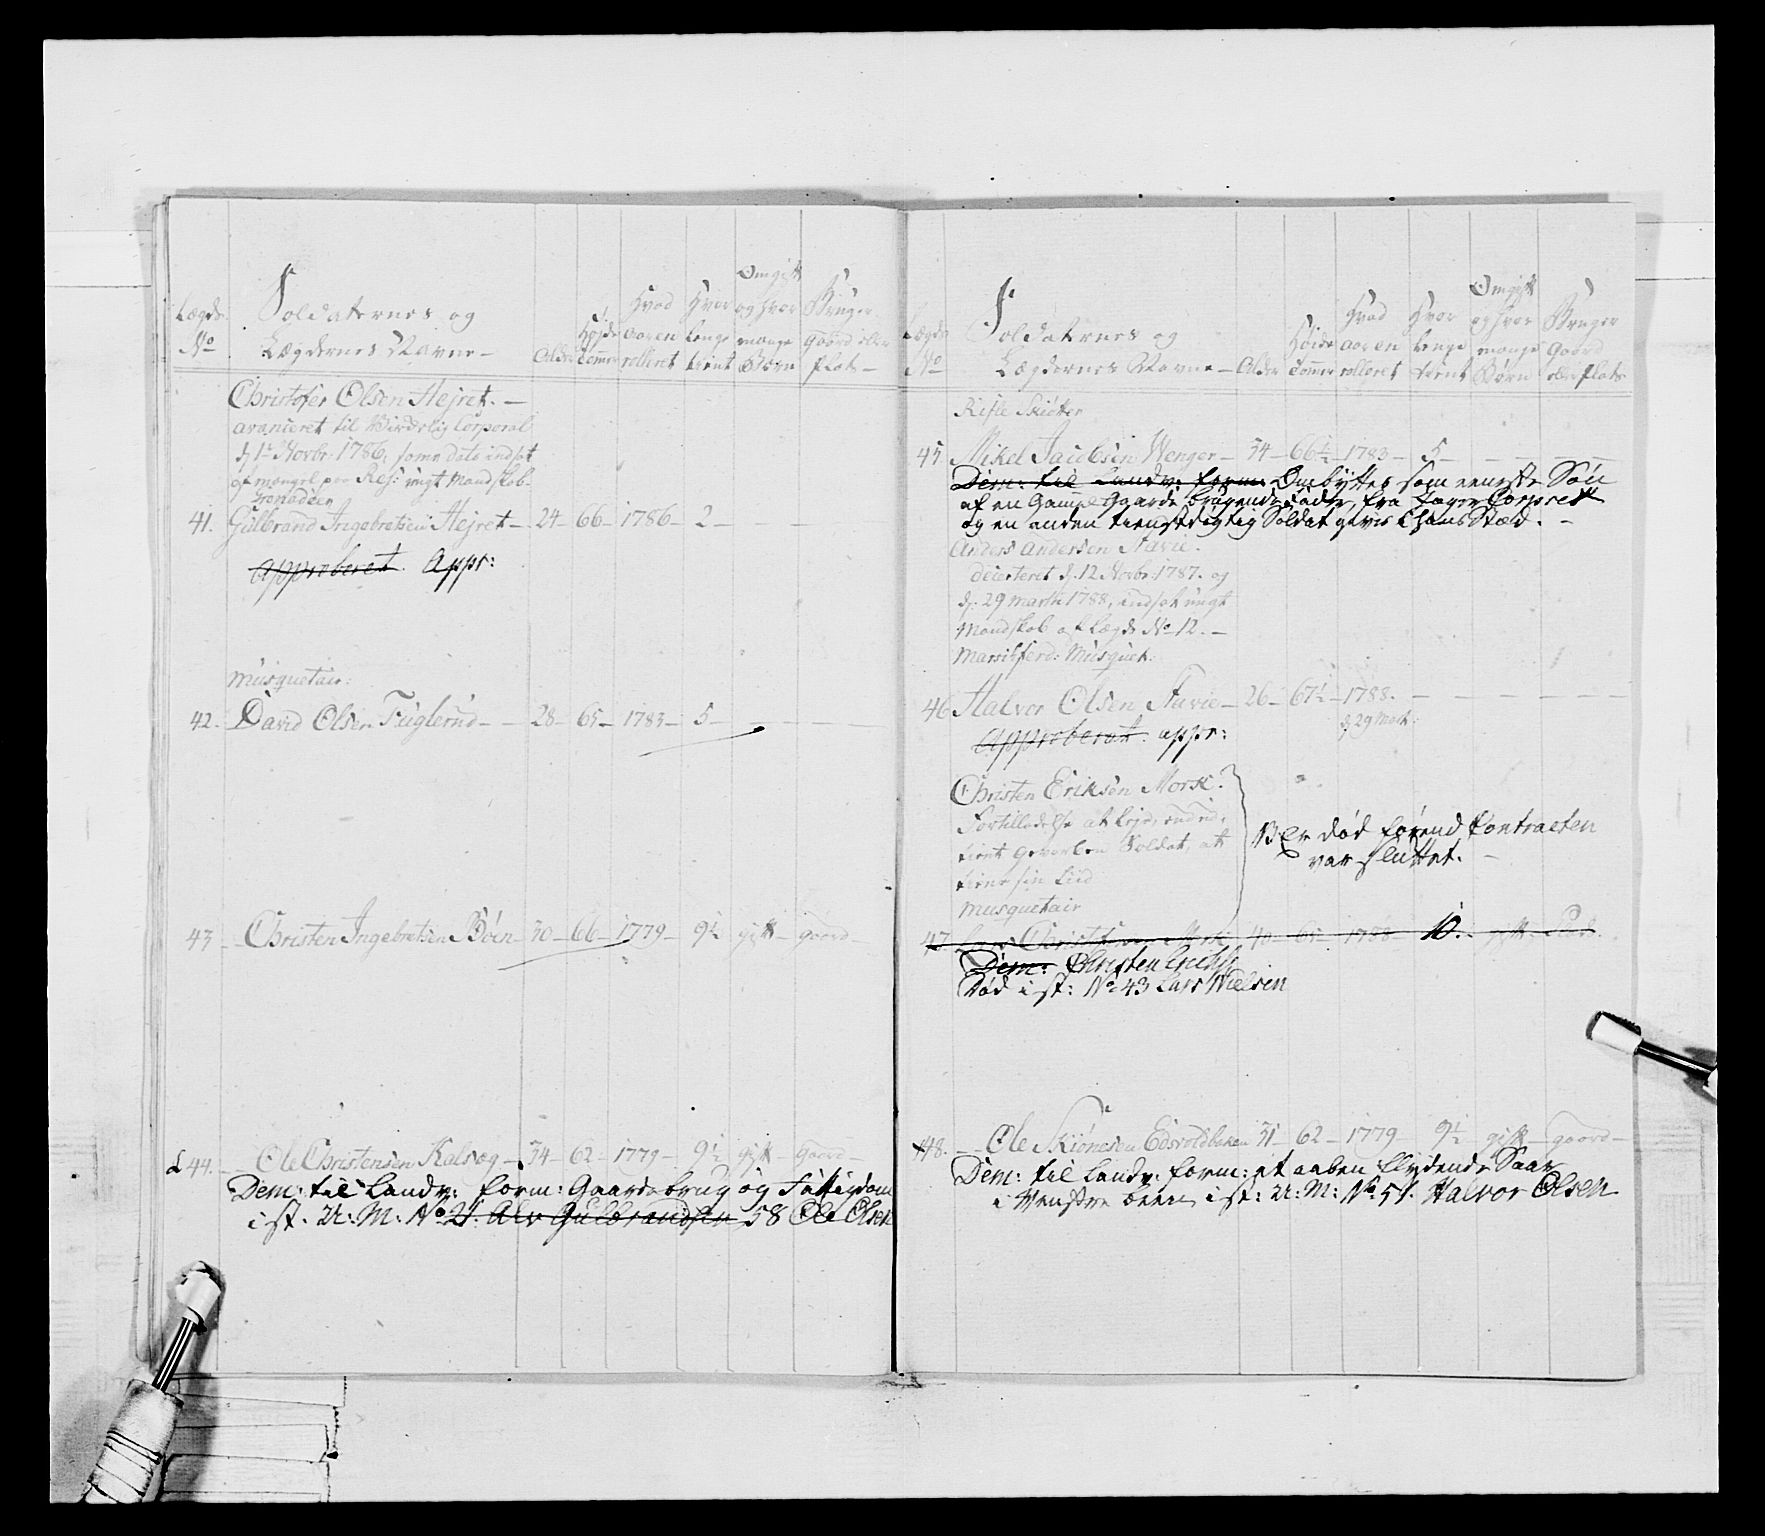 Lægds No
Soldaternes og Lægdernes Navne
Alder
Høide Tommer
Hvad aar en rolleret
Hvor lenge tient
Om gift og hvor mange Børn
Bruger Gaard eller Plads
Christofer Olsen Hejret. —
avanceret til Virkelig Corporal
d. 1te Novbr. 1786, samme Dato indsat
af mangel paa Rej: ungt Mandskab.
Gronadeer
41. Gulbrand Ingebretsen Hejret — 24 — 66 — 1786 — 2 —
Approberet. Appr:
Musquetair:
42. David Olsen Fuglerud — 28 — 65 — 1783 — 5 —
43 — Christen Ingebretsen Böin — 30 — 66 — 1779 — 9½ gift — gaard
44. — Ole Christensen Kalsæg — 34 — 62 — 1779 — 9½ gift — Gaard —
Dem: til Landv: form: Gaardebrug og Fattigdom
i st. U: M: No 21. Alv Gulbrandsen 58 Ole Olsen
Lægds No
Soldaternes og Lægdernes Navne —
Alder
Høide Tommer
Hvad aar en rolleret
Hvor lenge tient
Om gift og hvor mange Børn
Bruger Gaard eller Plads
Rifle Skiötter
45 Mikel Jacobsen Wenger — 34 — 66½ — 1783 — 5 —
Dem: til Landv: form: Ombyttes som eeneste Søn
af en Gammel Gaards brugende Fader, fra Jæger Corpset
og en anden tienstdygtig Soldat gives i hans Stæd. —
Anders Andersen Stavie.
deserteret d. 12 Novbr. 1787. og
d. 29 Martii 1788, indsat ungt
Mandskab af Lægds No 12. —
Marskferd: Musquet:
46 Halvor Olsen Stavie — 26 — 67½ — 1788. —
d. 29 Mart:
Approberet. appr:
Christen Eriksen Morsk.
Fortilladelse at leje, en
tient gevorben Soldat, at
tiene sin Tiid
NB Er død førend Contracten
var sluttet. —
Musquetair
47. Lars Christensen Morsk 40 — 65 — 1788 — 10. — gift — Plads.
Dem: Christen Erichs:
Død i st: No 43 Lars Nielsen
48. — Ole Skiönesen Edsvoldbaken 31 — 62 — 1779 — 9½ gift — gaard —
Dem: til Landv: form: et aaben flydende Saar
i Venstre Been i st: U: M: No 51. Halvor Olsen